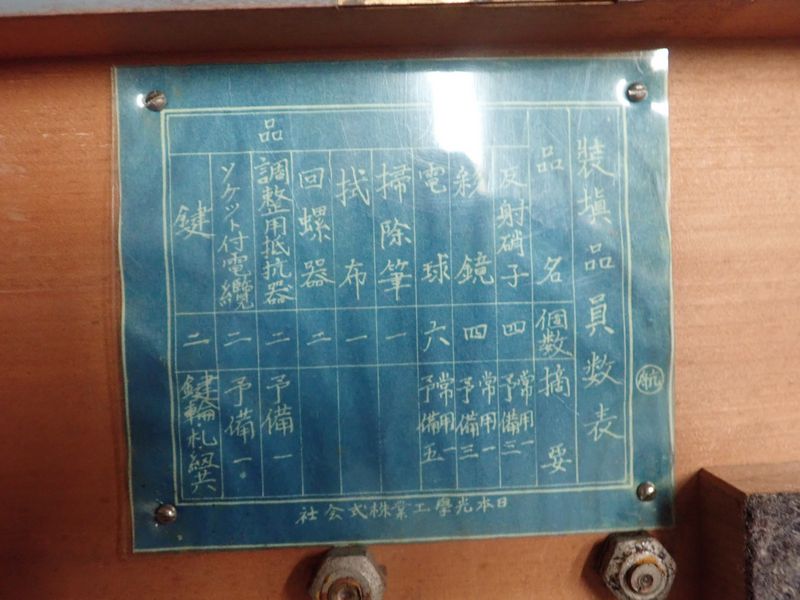 裝填品員数表
航
品名 個数 摘要
反射硝子 四 常用一 予備三
鏡 四 常用一 予備三
電球 六 常用一 予備五
掃除筆 一
拭布 一
回螺器 二
調整用抵抗器 二 予備一
ソケット付電纜 二 予備一
鍵 二 鍵輪、札、紐共
品
日本光學工業株式会社